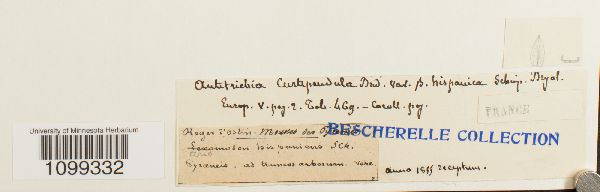 Antitrichia Curtipendula Brid. var. β. hispanica Schimp. Bryol.
Europ. V. pag. 2. Tab. 469. – Coroll. pag.
FRANCE
University of Minnesota Herbarium
1099332
Roger Mousses des
BESCHERELLE COLLECTION
Leucodon hispanicus Sch.
Pyrenées, ad truncos arborum. rare.
anno 1855 receptum.